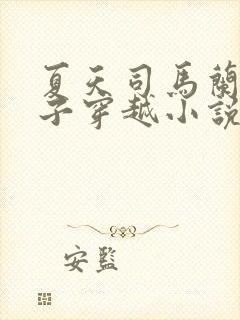 夏天司馬蘭
子穿越小說
安監